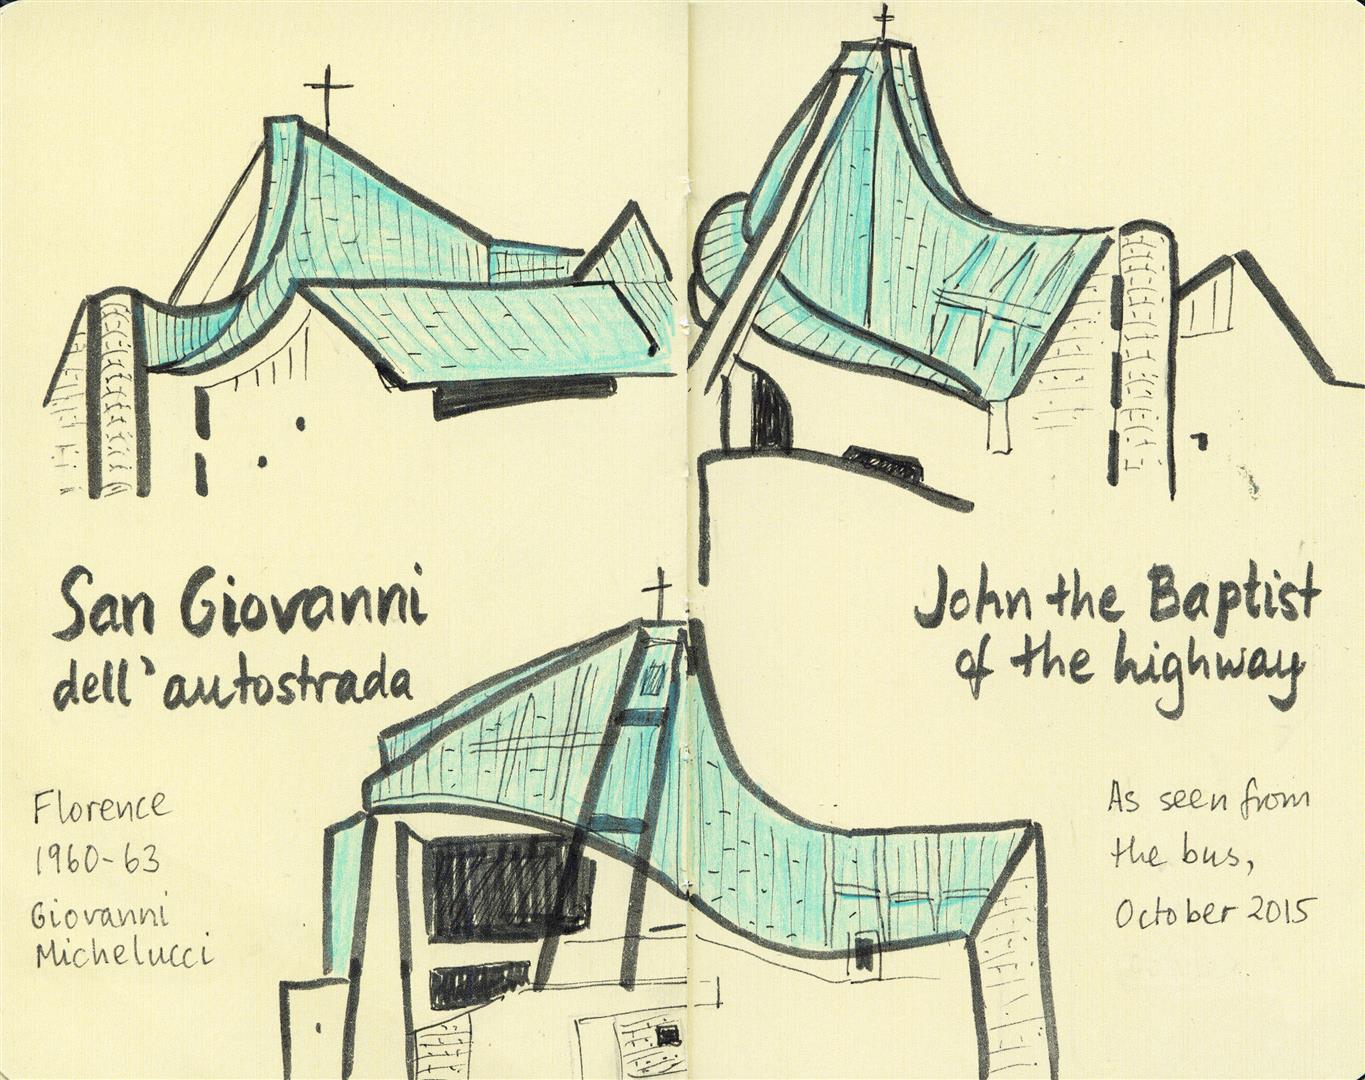 San Giovanni
dell'autostrada
John the Baptist
of the highway
Florence
1960-63
Giovanni
Michelucci
As seen from
the bus,
October 2015